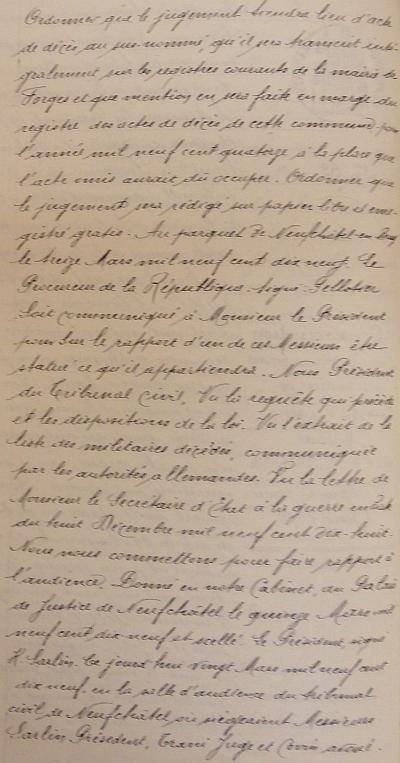 Ordonner que le jugement tiendra lieu d'acte
de décès au sus-nommé, qu'il sera transcrit inté-
gralement sur les registres courants de la mairie de
Forges et que mention en sera faite en marge du
registre des actes de décès de cette commune pour
l'année mil neuf cent quatorze à la place que
l'acte omis aurait dû occuper. Ordonner que
le jugement sera rédigé sur papier libre et enre-
gistré gratis. Au parquet de Neufchâtel-en-Bray
le treize Mars mil neuf cent dix neuf. Le
Procureur de la République. signé Pellotier
Soit communiqué à Monsieur le Président
pour sur le rapport d'un de ces Messieurs être
statué ce qu'il appartiendra. Nous Président
du Tribunal Civil, Vu la requête qui précède
et les dispositions de la loi. Vu l'extrait de la
liste des militaires décédés, communiquée
par les autorités allemandes. Vu la lettre de
Monsieur le Secrétaire d'Etat à la guerre en date
du huit Décembre mil neuf cent dix-huit.
Nous nous commettons pour faire rapport à
l'audience. Donné en notre Cabinet, au Palais
de Justice de Neufchâtel le quinze Mars mil
neuf cent dix neuf et scellé. Le Président, signé
H. Sarlin. Ce jourd'hui vingt Mars mil neuf cent
dix neuf en la salle d'audience du tribunal
civil de Neufchâtel, où siégeaient Messieurs
Sarlin Président, Juge et